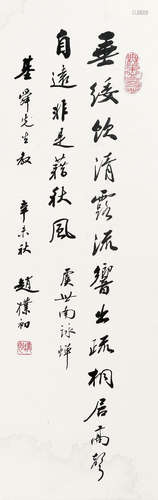 垂緌飲清露流響出疏桐居高聲
自遠非是藉秋風
虞世南詠蟬
基舜先生教
辛未秋
趙樸初